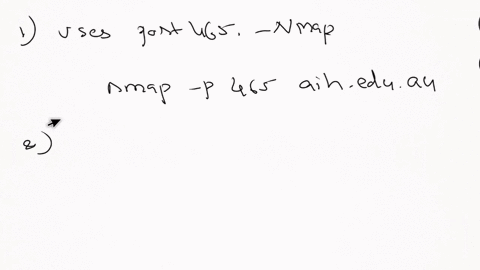 1) uses port 465. - Nmap
nmap -p 465 aih.edu.au
2)